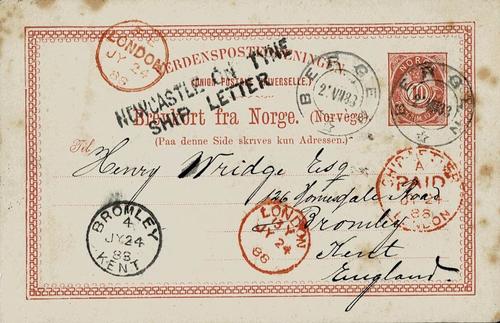 S.E
LONDON
JY 24
88
VERDENSPOSTFORENINGEN.
(UNION POSTALE UNIVERSELLE.)
NEWCASTLE ON TYNE
SHIP LETTER
BERGEN
NORGE
10
BERGEN
Brevkort fra Norge. (Norvège)
(Paa denne Side skrives kun Adressen.)
Til
Henry Wridge Esq
126 Homesdale Road
Bromley
Kent
England.
A
PAID
88
LONDON
BROMLEY
4
JY 24
88
KENT
LONDON
JY 24
88